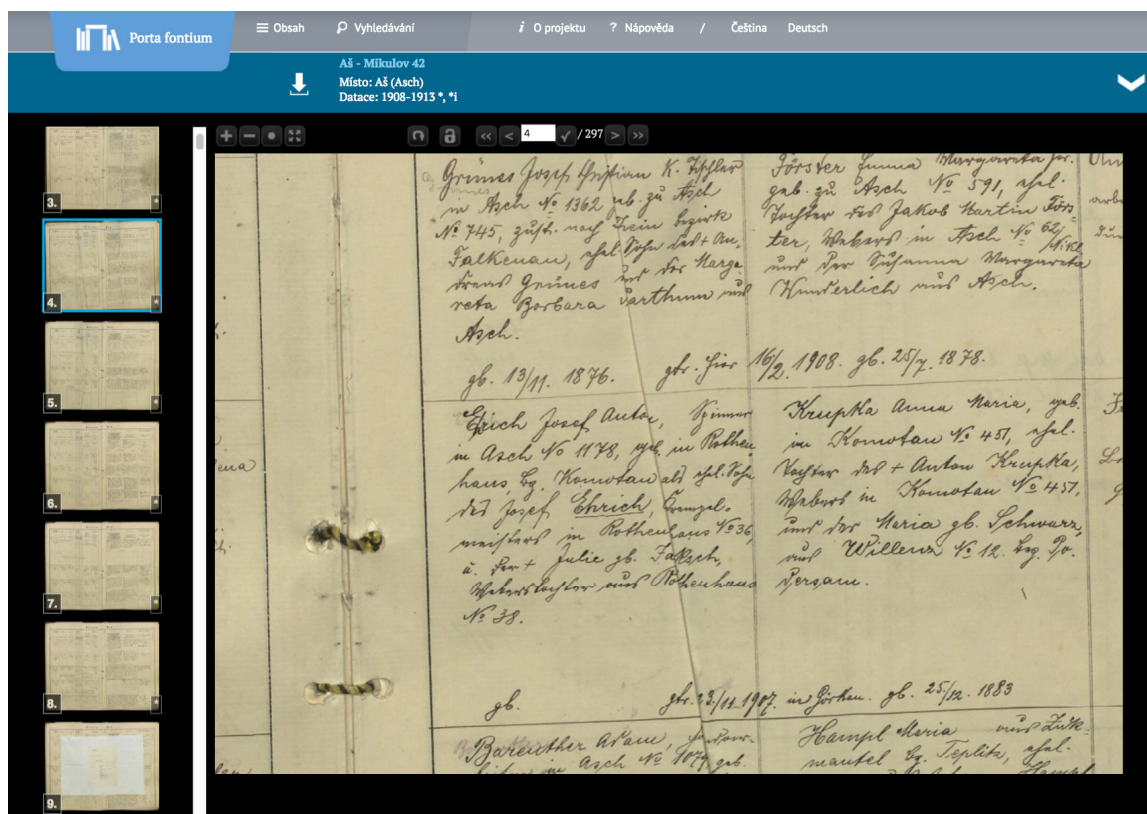 Porta fontium
Obsah
Vyhledávání
i O projektu
? Nápověda
/
Čeština
Deutsch
Aš - Mikulov 42
Místo: Aš (Asch)
Datace: 1908-1913 *, *i
4 / 297
3. *
4. *
5.
6. *
7. *
8. *
9.
Grünes Josef Christian K. Tischler
in Asch № 1362 geb. zu Asch
№ 745, zust. nach Bezirk
Falkenau, ehel. Sohn des + An-
dreas Grünes und der Marga-
reta Barbara Parthum aus
Asch.
gb. 13/11. 1876.
Förster Emma Margareta
geb. zu Asch № 591, ehel.
Tochter des Jakob Martin Förs-
ter, Webers in Asch № 62/Nikl.
und der Susanna Margareta
Wunderlich aus Asch.
gtr. hier 16/2. 1908. gb. 25/7. 1878.
Erich Josef Anton, Spinner
in Asch № 1178, geb. in Rothen
haus, Bz. Komotau als ehel. Sohn
des Josef Ehrich,
meisters in Rothenhaus № 36,
u. der + Julie gb. Faksch,
Weberstochter aus Rothenhaus
№ 38.
gb.
Krupka Anna Maria, geb.
in Komotau № 451, ehel.
Tochter des + Anton Krupka,
Webers in Komotau № 451,
und der Maria gb. Schwarz,
aus Willenz № 12. Bez. Po-
dersam.
gtr. 23/11. 1907. in Görkau. gb. 25/12. 1883
Bareuther Adam,
in Asch № 1079 geb.
Hampl Maria aus Zuck-
mantel bz. Teplitz, ehel.
Hampl